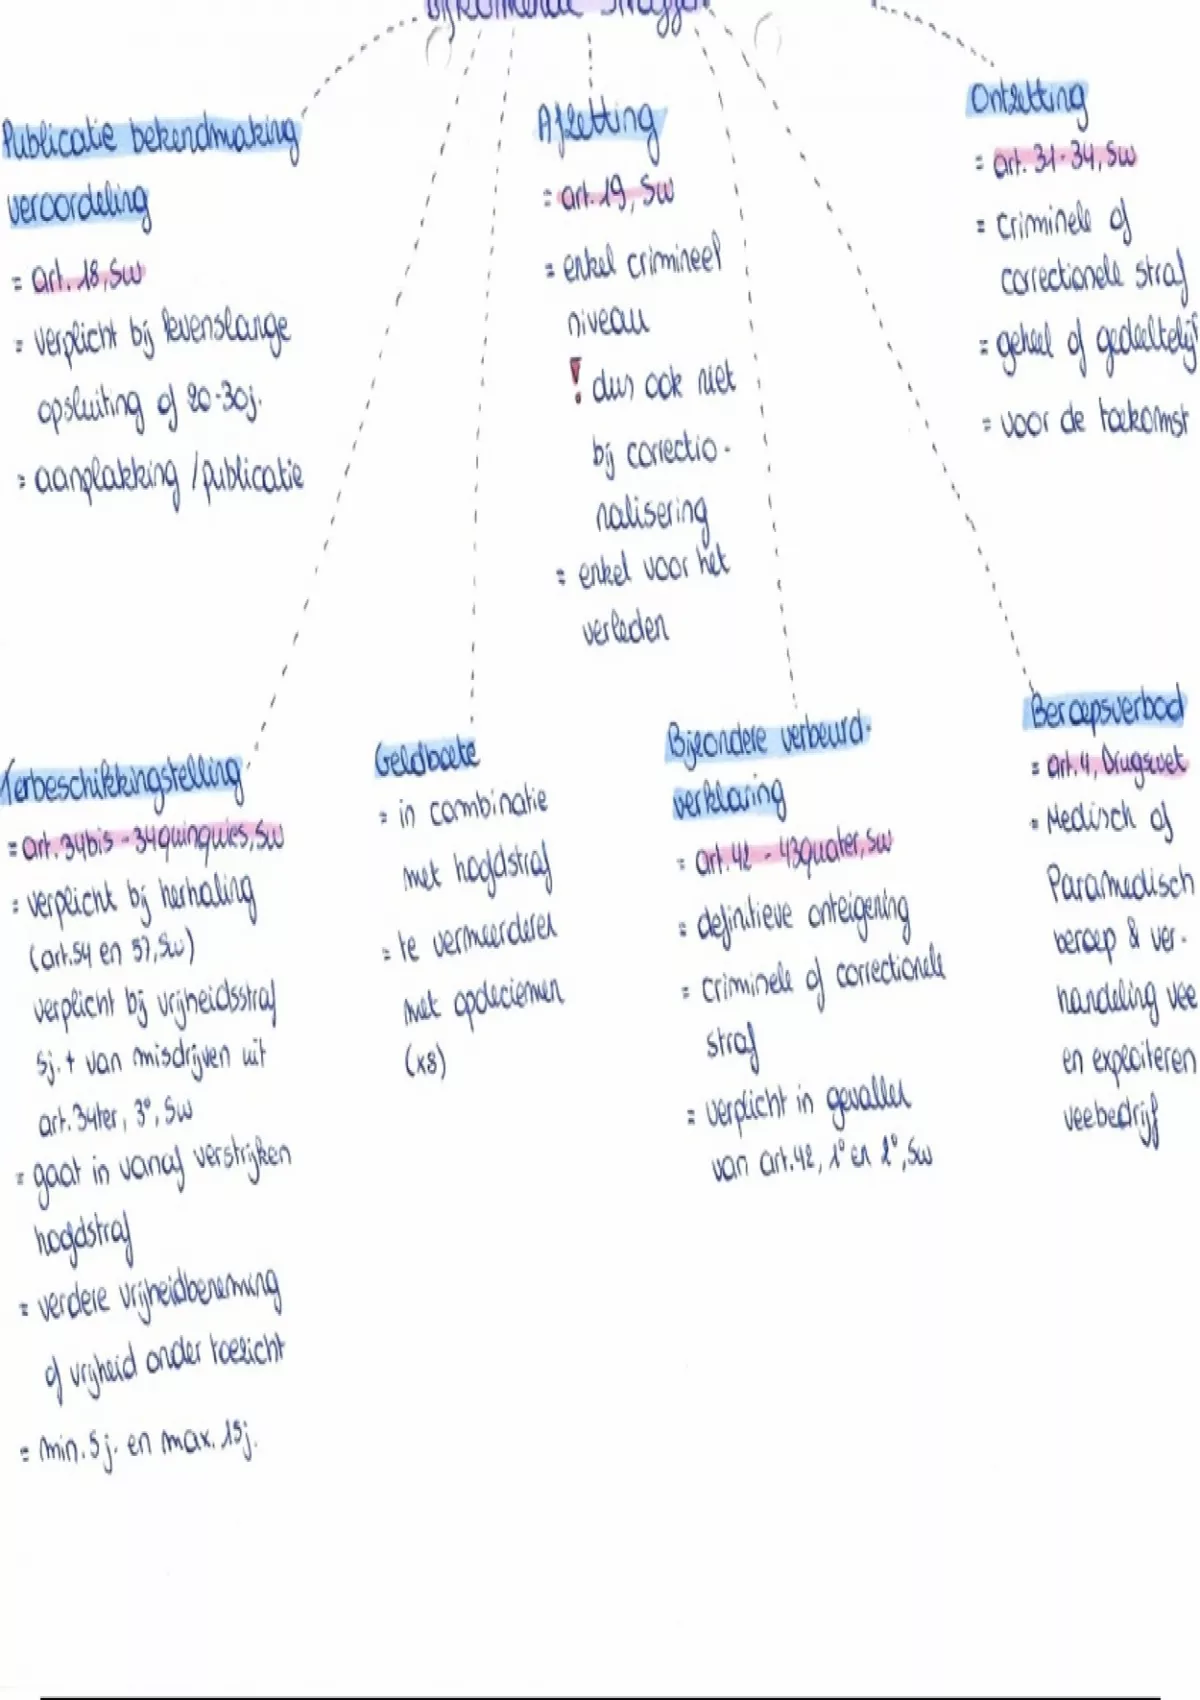 Bijkomende straffen
Publicatie bekendmaking
veroordeling
= art. 18, Sw
= verplicht bij levenslange
opsluiting of 20-30j.
= aanplakking / publicatie
Afzetting
= art. 19, Sw
= enkel crimineel
niveau
! dus ook niet
bij correctio-
nalisering
= enkel voor het
verleden
Ontzetting
= art. 31-34, Sw
= Criminele of
correctionele straf
= geheel of gedeeltelijk
= voor de toekomst
Terbeschikkingstelling
= art. 34bis - 34quinquies, Sw
= verplicht bij herhaling
(art. 54 en 57, Sw)
verplicht bij vrijheidsstraf
5j. + van misdrijven uit
art. 34ter, 3°, Sw
= gaat in vanaf verstrijken
hoofdstraf
= verdere vrijheidbeneming
of vrijheid onder toezicht
= min. 5 j. en max. 15j.
Geldboete
= in combinatie
met hoofdstraf
= te vermeerderen
met opdeciemen
(x8)
Bijzondere verbeurd-
verklaring
= art. 42 - 43quater, Sw
= definitieve onteigening
= criminele of correctionele
straf
= verplicht in gevallen
van art. 42, 1° en 2°, Sw
Beroepsverbod
= art. 4, Drugswet
= Medisch of
Paramedisch
beroep & ver-
handeling vee
en exploiteren
veebedrijf